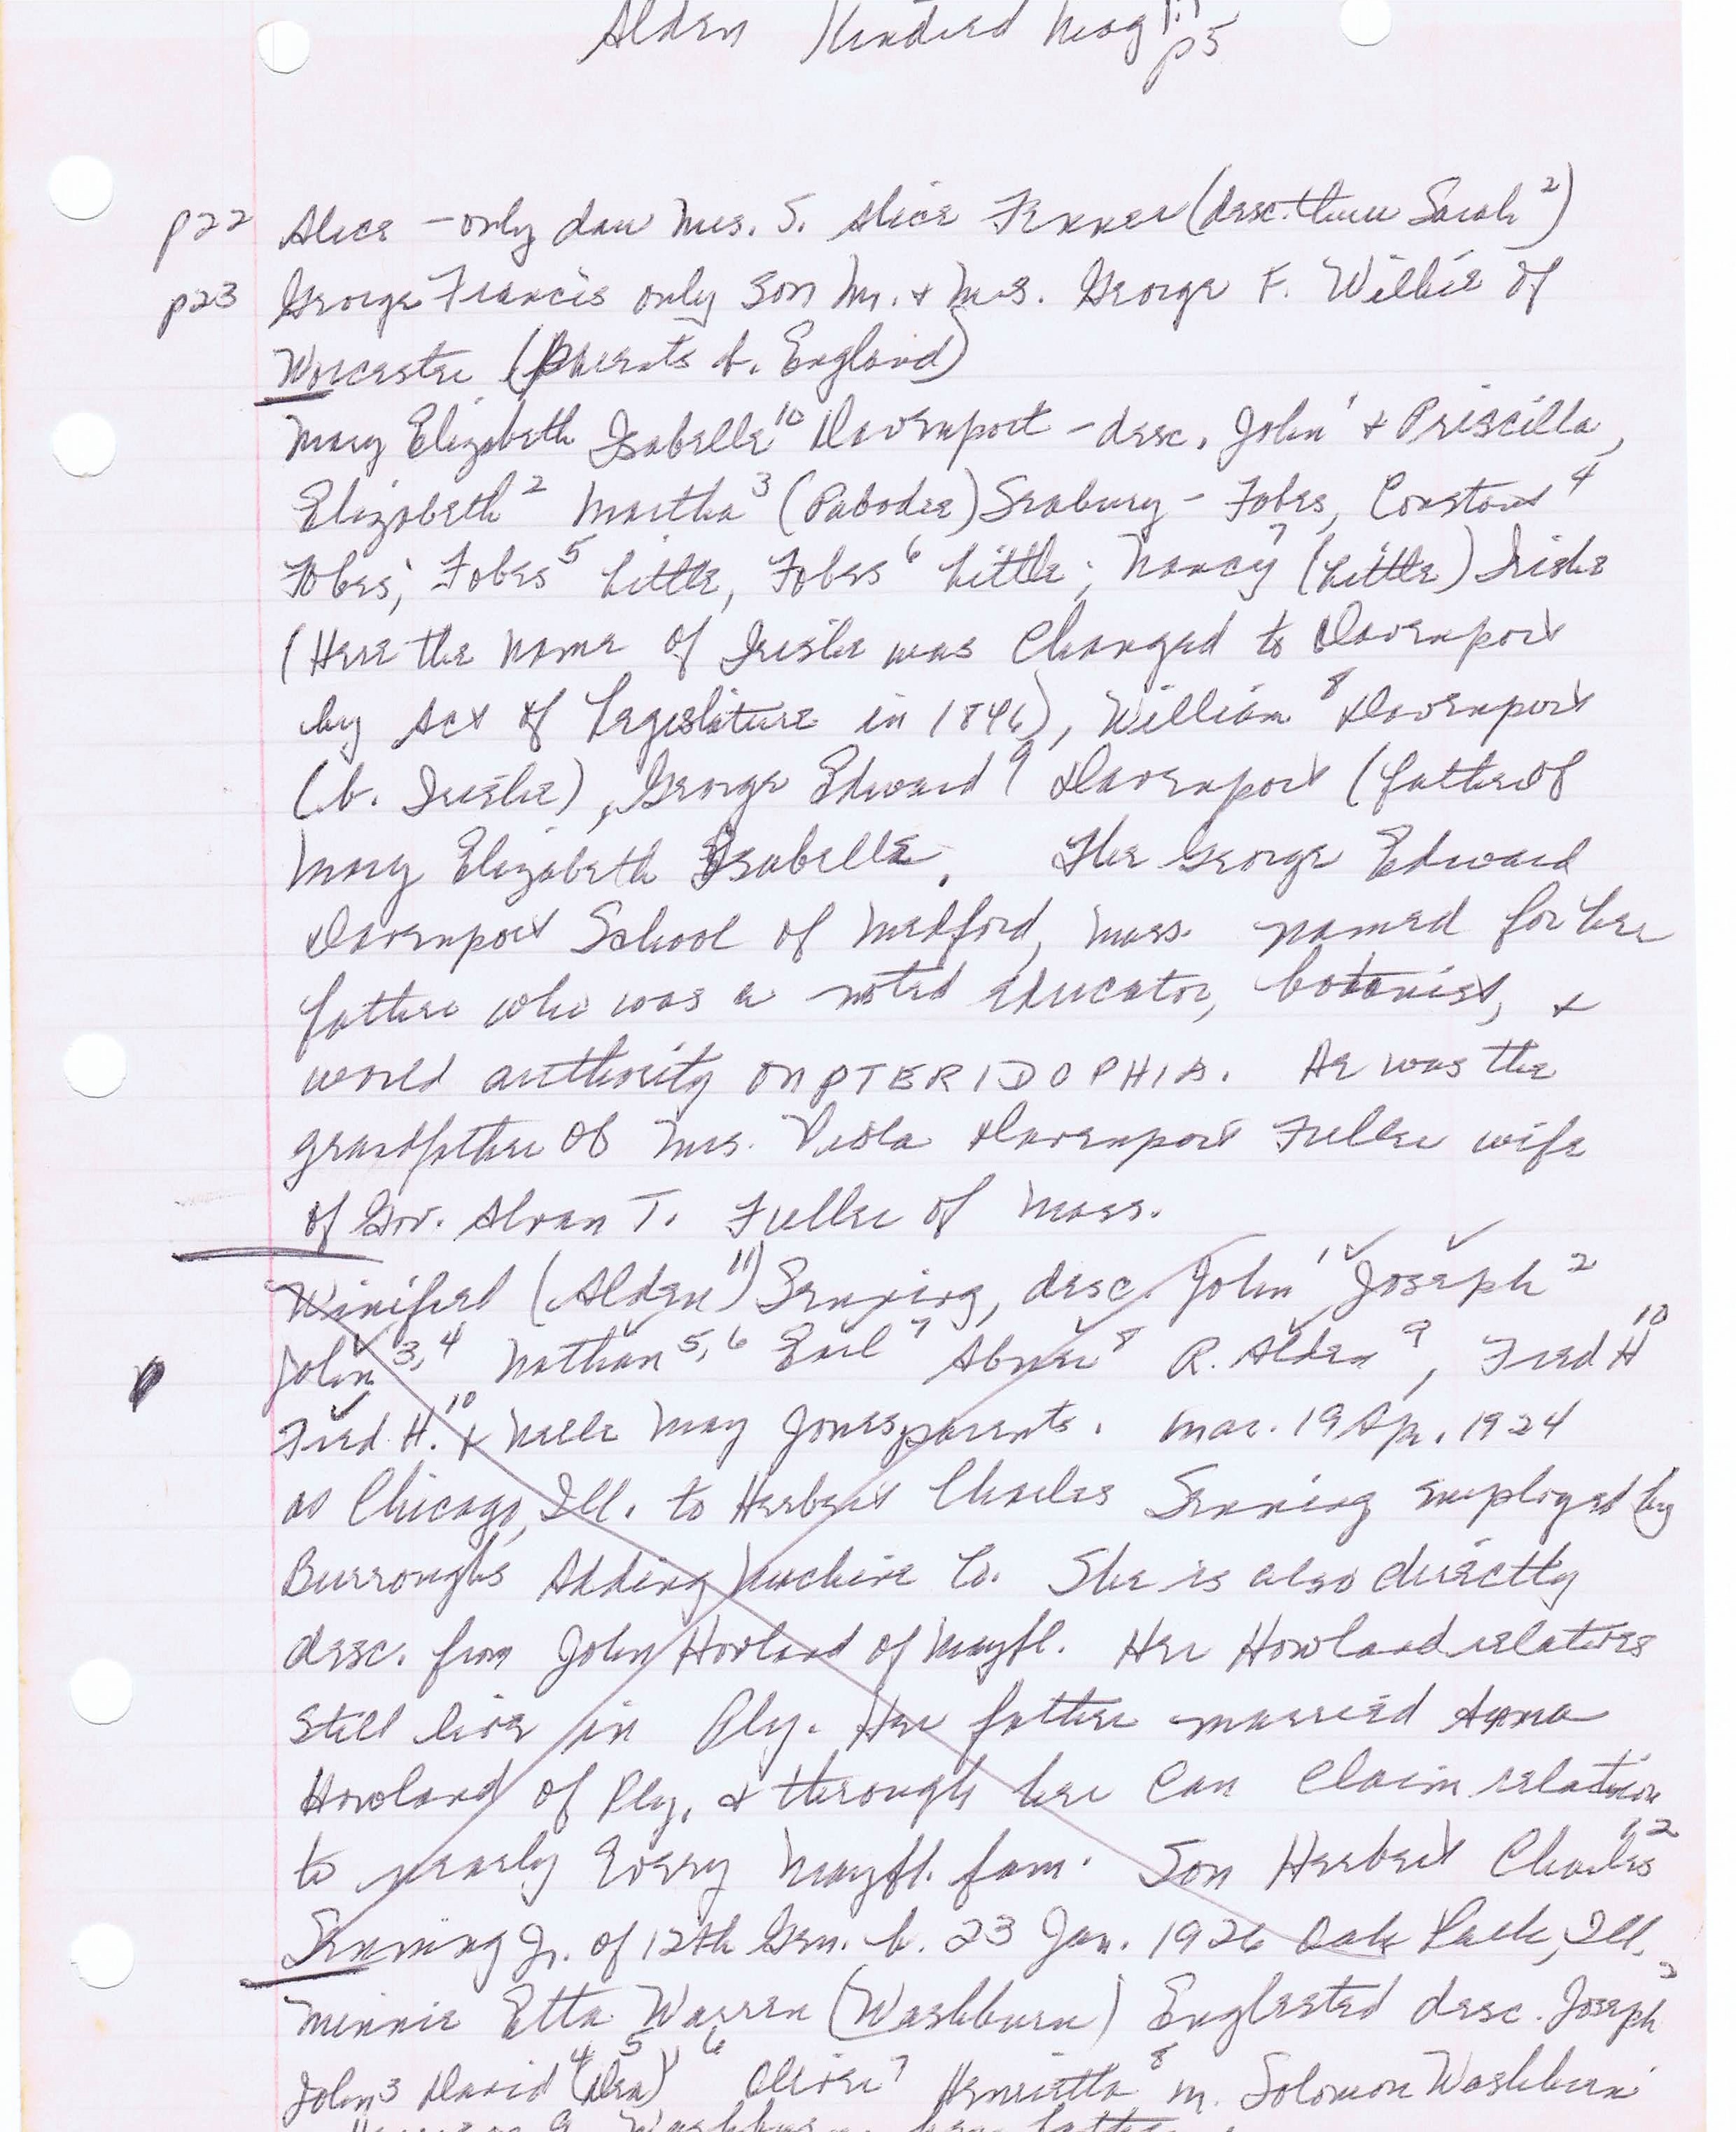 Alden Kindred Mag 1:1
p5
p22 Alice - only dau Mrs. S. Alice Fenner (desc. thru Sarah²)
p23 George Francis only son Mr. & Mrs. George F. Willie of
Worcester (parents b. England)
Mary Elizabeth Isabelle¹⁰ Davenport - desc. John¹ & Priscilla,
Elizabeth² Martha³ (Pabodie) Seabury - Fobes, Constant⁴
Fobes; Fobes⁵ Little, Fobes⁶ Little; Nancy⁷ (Little) Irish
(Here the name of Irish was changed to Davenport
by Act of Legislature in 1846), William⁸ Davenport
(b. Irish), George Edward⁹ Davenport (father of
Mary Elizabeth Isabelle. The George Edward
Davenport School of Medford, Mass. named for her
father who was a noted educator, botanist, &
world authority on PTERIDOPHIA. He was the
grandfather of Mrs. Viola Davenport Fuller wife
of Gov. Alvan T. Fuller of Mass.
Winifred (Alden¹¹) Senning, desc. John¹ Joseph²
John³,⁴ Nathan⁵,⁶ Earl⁷ Abner⁸ R. Alden⁹, Fred H¹⁰
Fred H.¹⁰ & Nelle May Jones parents. mar. 19 Apr. 1924
at Chicago, Ill. to Herbert Charles Senning employed by
Burroughs Adding Machine Co. She is also directly
desc. from John Howland of Mayfl. Her Howland relatives
still live in Ply. Her father married Anna
Howland of Ply, & through her can claim relation
to nearly every Mayfl. fam. Son Herbert Charles¹²
Senning Jr. of 12th Gen. b. 23 Jan. 1926 Oak Park, Ill.
Minnie Etta Warren (Washburn) Englested desc. Joseph²
John³ David⁴ (Dea)⁵ ⁶ Oliver⁷ Henrietta⁸ m. Solomon Washburn